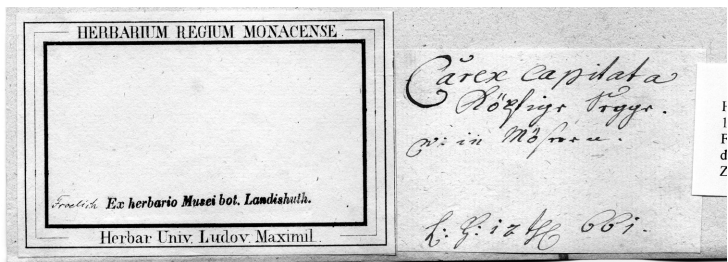 HERBARIUM REGIUM MONACENSE
Froelich Ex herbario Musei bot. Landishuth.
Herbar. Univ. Ludov. Maximil.
Carex capitata
Köpfige Segge.
in Mösern.
661.
H
F
d
Z